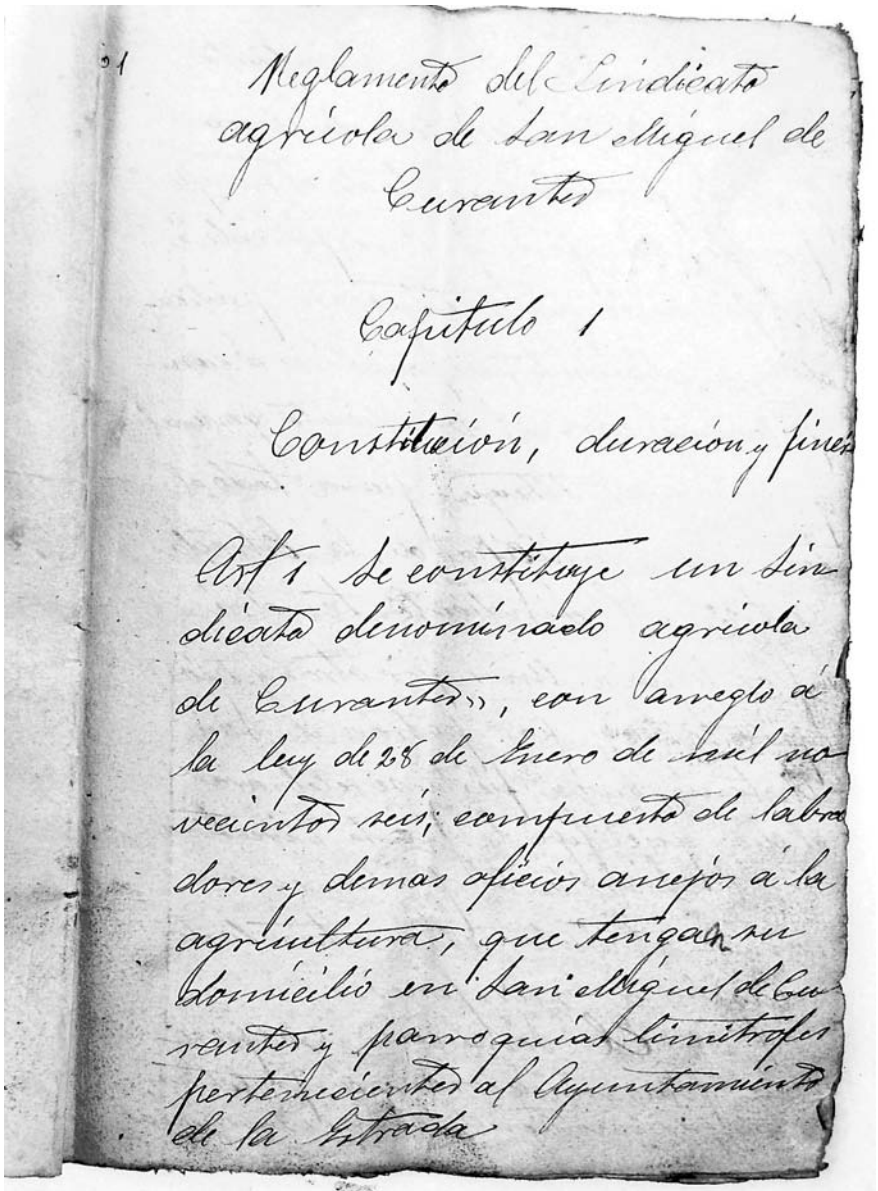 21
Reglamento del Sindicato
agrícola de San Miguel de
Curantes
Capitulo 1
Constitución, duración y fines
Art 1 Se constituye un Sin
dicato denominado agrícola
de Curantes», con arreglo á
la ley de 28 de Enero de mil no
vecientos seis; compuesto de labra
dores y demas oficios anejos á la
agricultura, que tengan su
domicilio en San Miguel de Cu
rantes y parroquias limitrofes
pertenecientes al Ayuntamiento
de la Estrada